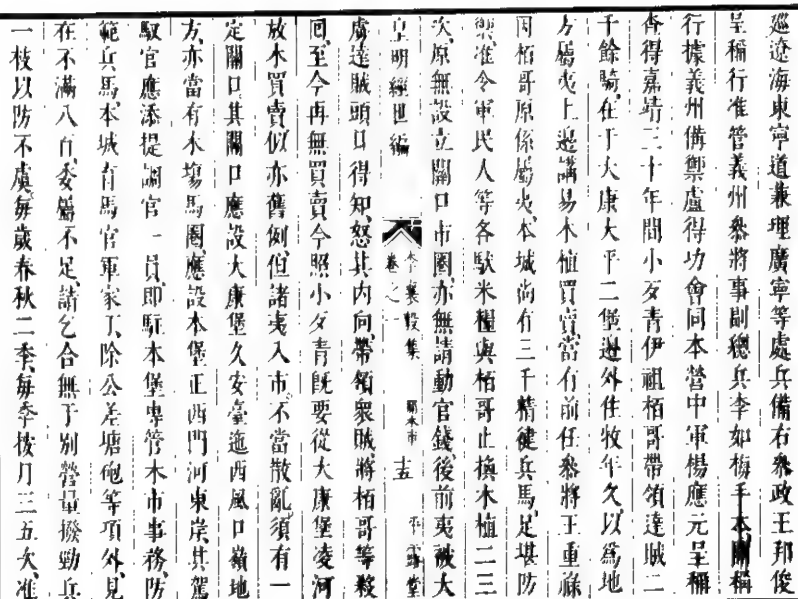 巡遼海東寧道兼理廣寧等處兵備右參政王邦俊
呈稱行准管義州參將事副總兵李如梅手本開稱
行據義州備禦盧得功會同本營中軍楊應元呈稱
查得嘉靖三十年間小歹青伊祖栢哥帶領達賊二
千餘騎在于大康大平二堡邊外住牧年久以爲地
方屬夷上邊講易木植買賣當有前任參將王重祿
因栢哥原係屬夷本城尚有三千精健兵馬足堪防
禦准令軍民人等各馱米糧與栢哥止換木植二三
次原無設立關口市圈亦無請動官錢後前夷被大
皇明經世編 卷之 李襄毅集 關木市 十五 平露堂
虜達賊頭口得知怒其内向帶領衆賊將栢哥等殺
回至今再無買賣今照小歹青旣要從大康堡凌河
放木買賣似亦舊例但諸夷入市不當散亂須有一
定關口其關口應設大康堡久安臺迤西風口嶺地
方亦當有木塲馬圈應設本堡正西門河東岸其駕
馭官應添提調官一員卽駐本堡專管木市事務防
範兵馬本城有馬官軍家丁除公差塘砲等項外見
在不滿八百委屬不足請乞合無于別營量撥勁兵
一枝以防不虞每歲春秋二季每季按月三五次准